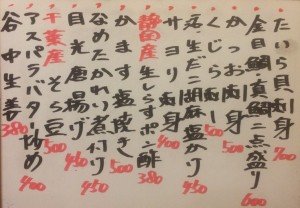 たいら貝刺身 700
金目鯛真鯛二点盛り 600
かつお刺身 500
くじら刺し 500
生だこ胡麻塩かけ 450
サヨリ刺身 400
静岡産 生しらすポン酢 380
かます塩焼き 500
なめたかれい煮付け 450
目光唐揚げ 450
千葉産 そら豆 500
アスパラバター炒め 400
谷中生姜 380